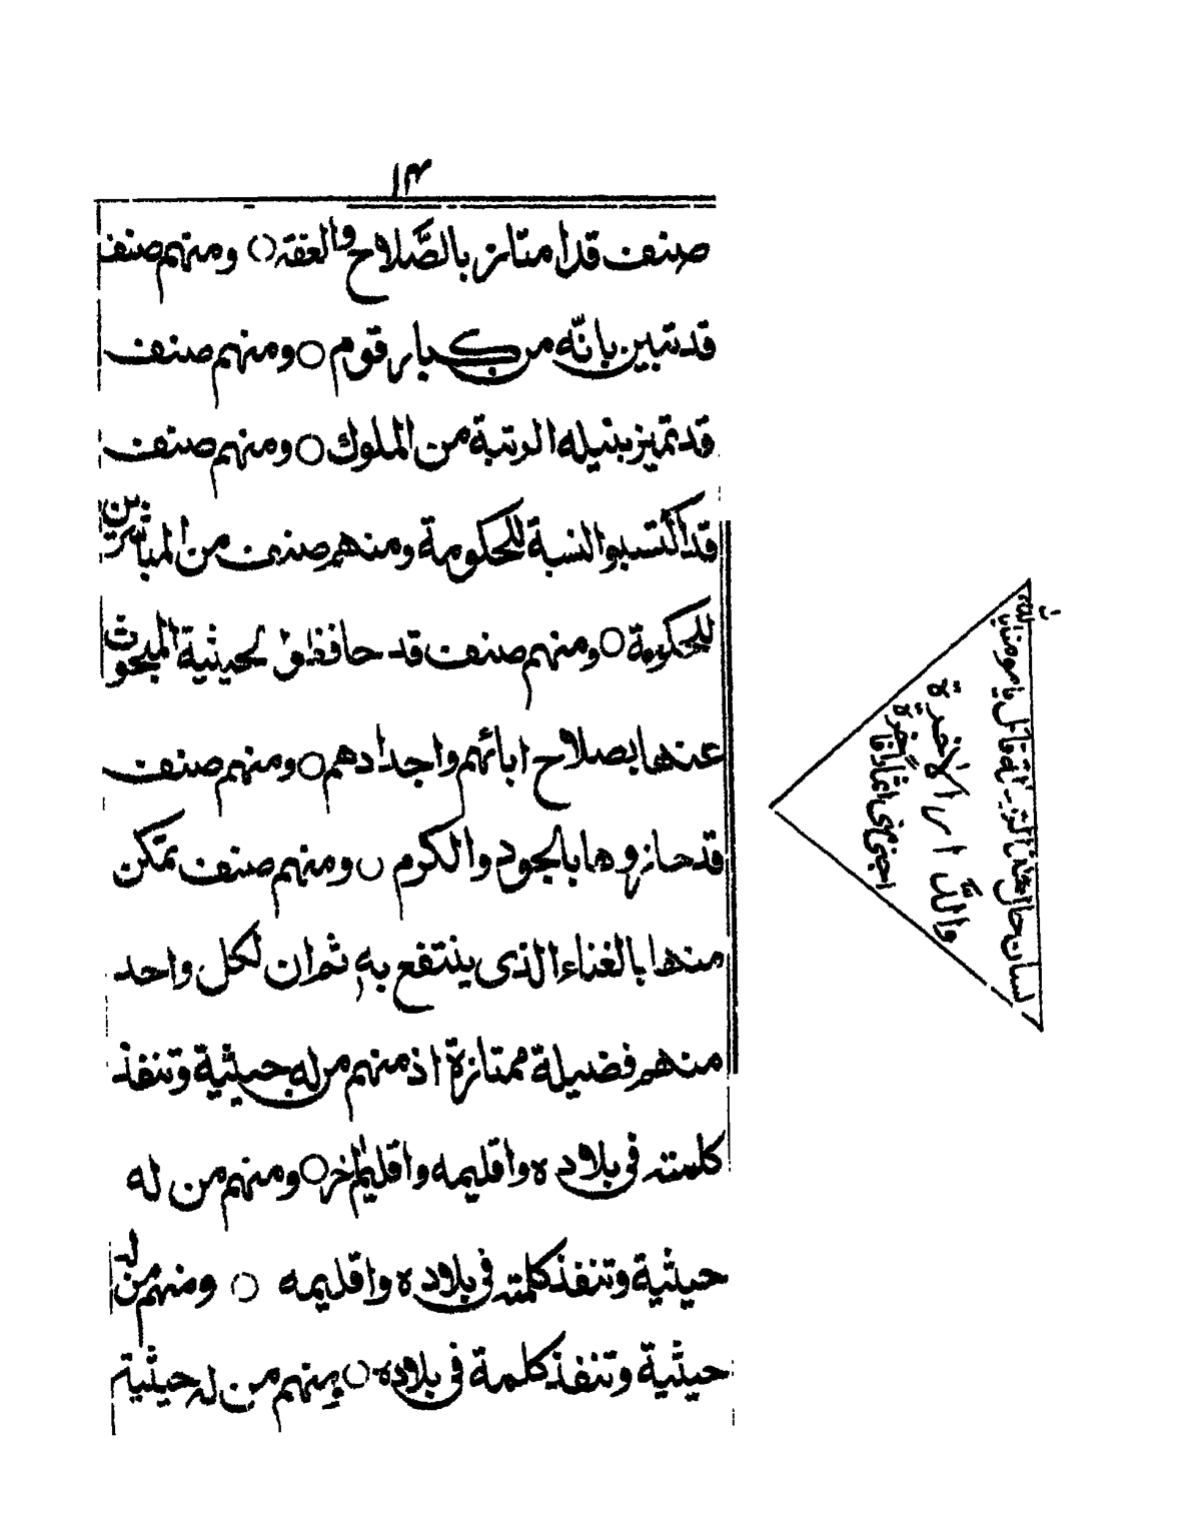 ١٣
صنف قد امتاز بالصَّلاح والعفة ○ ومنهم صنف
قد تبين بانّه من كبار قوم ○ ومنهم صنف
قد تميز بنيله الرتبة من الملوك ○ ومنهم صنف
قد اكتسبوا النسبة للحكومة ومنهم صنف من المباشرين
للحكومة ○ ومنهم صنف قد حافظوا لحيثية المبحوث
عنها بصلاح ابائهم واجدادهم ○ ومنهم صنف
قد حازوها بالجود والكرم ○ ومنهم صنف تمكن
منها بالغناء الذى ينتفع به ثم ان لكل واحد
منهم فضيلة ممتازة اذ منهم من له حيثية وتنفذ
كلمته فى بلاده واقليمه واقليم اخر ○ ومنهم من له
حيثية وتنفذ كلمته فى بلاده واقليمه ○ ومنهم من له
حيثية وتنفذ كلمة فى بلاده ○ ومنهم من له حيثية
لسان حال
والدّار الاخرة